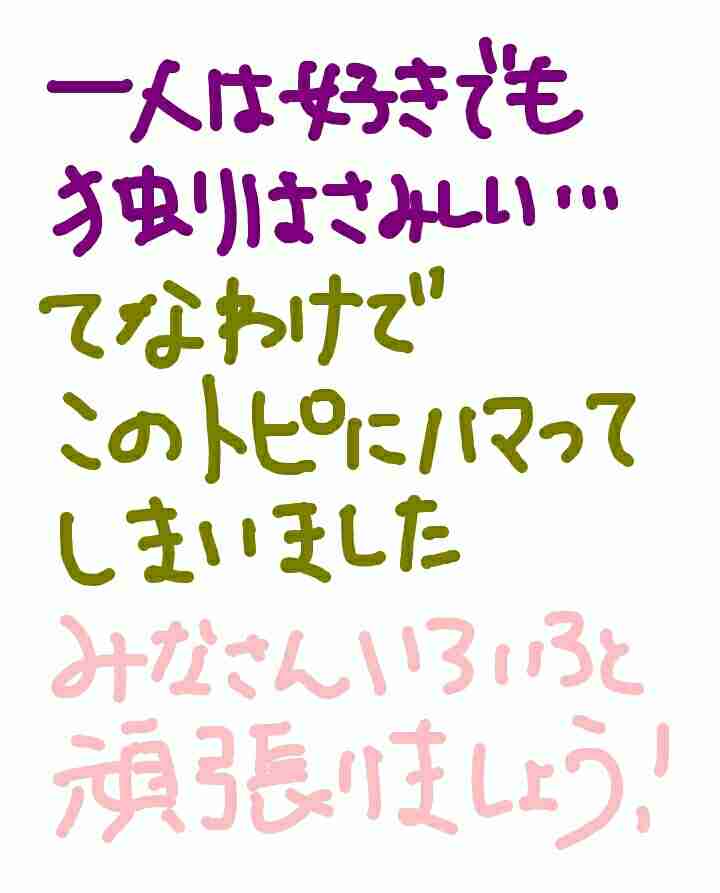 一人は好きでも
独りはさみしい…
てなわけで
このトピにハマって
しまいました
みなさんいろいろと
頑張りましょう!